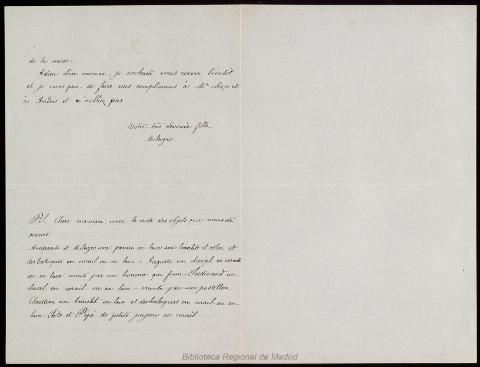 de la messe.
Adieu chère maman, je souhaite vous revoir bientôt
et je vous prie de faire mes compliments à Mr et
à Andres et n'oubliez pas
Votre très dévouée fille
Milagro
P.S. Chère maman, voici la note des objets que nous dé
sirons
Amparito et Milagro une parure en lave avec bracelet et collier et
des boutons en corail ou en lave. Auguste un cheval en corail
ou en lave monté par un homme qui fume. Ferdinand un
cheval en corail ou en lave monté par un postillon
Christine un bracelet en lave et des en corail ou en
lave. Tito et Pepé de petits pigeons en corail
Biblioteca Regional de Madrid